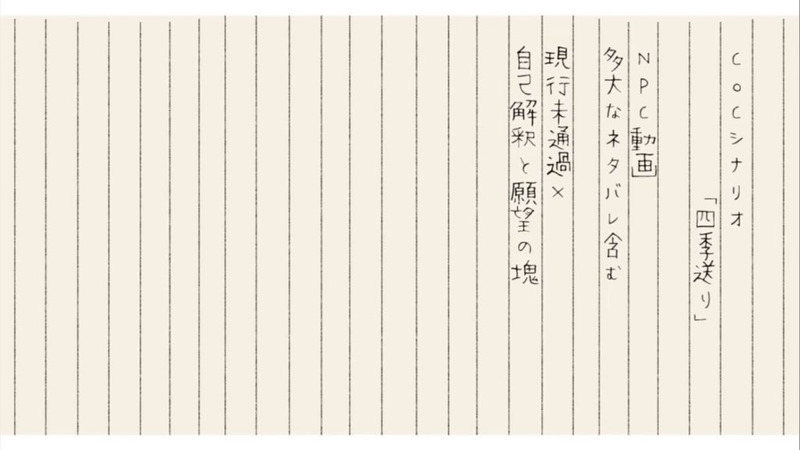 CoCシナリオ
「四季送り」
NPC動画
多大なネタバレ含む
現行未通過×
自己解釈と願望の塊